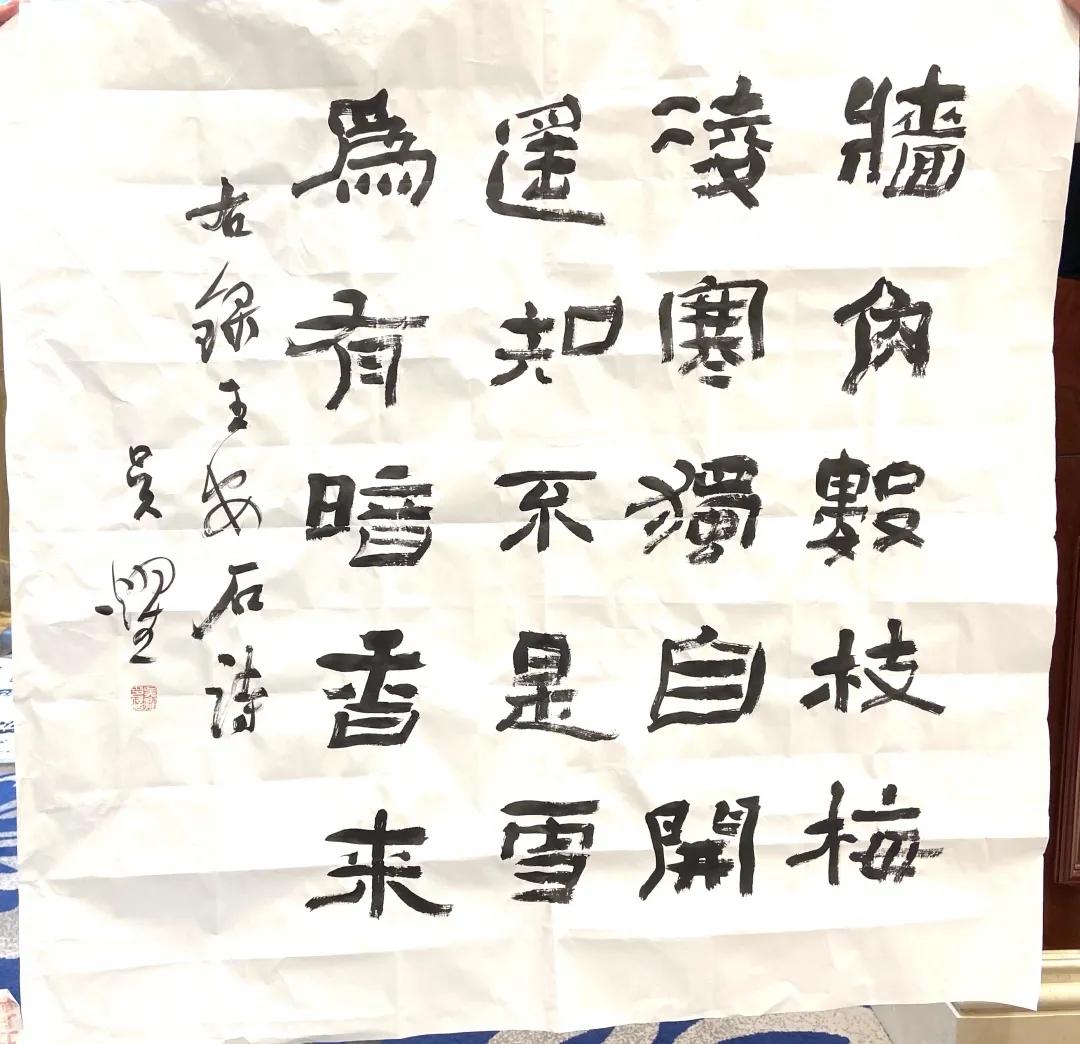 牆角數枝梅
凌寒獨自開
遥知不是雪
為有暗香来
右録王安石诗
吴